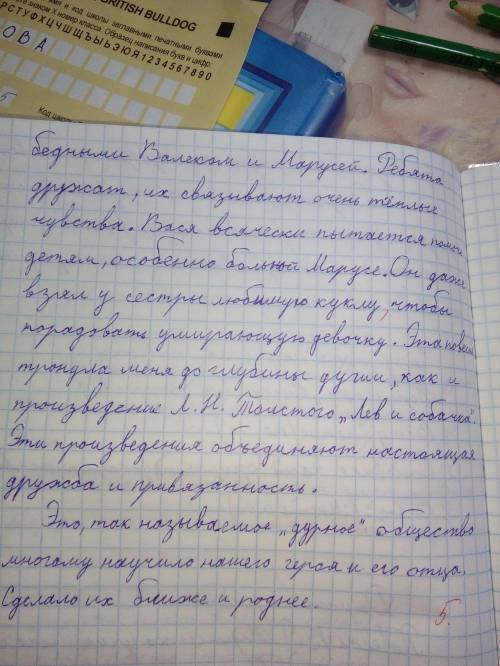 BRITISH BULLDOG
и код школы заглавными печатными буквами
номер класса. Образец написания букв и цифр:
РСТУФХЦЧШЩЪЫЬЭЮЯ1234567890
ОВА
5
Код школы
бедными Валеком и Марусей. Ребята
дружат, их связывают очень тёплые
чувства. Вася всячески пытается помочь
детям, особенно больной Марусе. Он даже
взял у сестры любимую куклу, чтобы
порадовать умирающую девочку. Эта повесть
тронула меня до глубины души, как и
произведение Л.Н. Толстого „Лев и собачка".
Эти произведения объединяют настоящая
дружба и привязанность.
Это, так называемое „дурное" общество
многому научило нашего героя и его отца.
Сделало их ближе и роднее.
5.